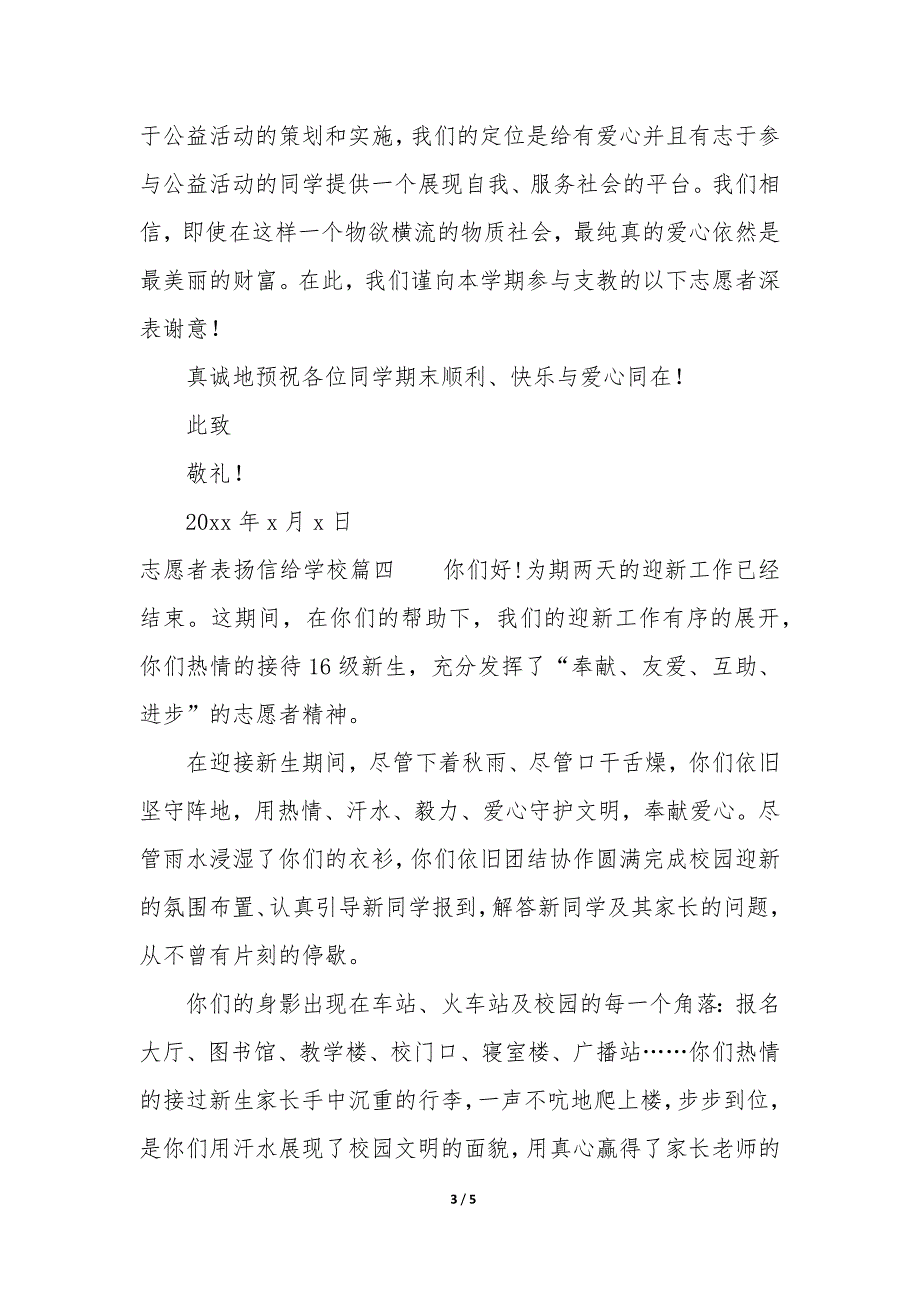 于公益活动的策划和实施，我们的定位是给有爱心并且有志于参
与公益活动的同学提供一个展现自我、服务社会的平台。我们相
信，即使在这样一个物欲横流的物质社会，最纯真的爱心依然是
最美丽的财富。在此，我们谨向本学期参与支教的以下志愿者深
表谢意！
真诚地预祝各位同学期末顺利、快乐与爱心同在！
此致
敬礼！
20xx 年 x 月 x 日
志愿者表扬信给学校篇四　　你们好！为期两天的迎新工作已经
结束。这期间，在你们的帮助下，我们的迎新工作有序的展开，
你们热情的接待 16 级新生，充分发挥了“奉献、友爱、互助、
进步”的志愿者精神。
在迎接新生期间，尽管下着秋雨、尽管口干舌燥，你们依旧
坚守阵地，用热情、汗水、毅力、爱心守护文明，奉献爱心。尽
管雨水浸湿了你们的衣衫，你们依旧团结协作圆满完成校园迎新
的氛围布置、认真引导新同学报到，解答新同学及其家长的问题，
从不曾有片刻的停歇。
你们的身影出现在车站、火车站及校园的每一个角落：报名
大厅、图书馆、教学楼、校门口、寝室楼、广播站……你们热情
的接过新生家长手中沉重的行李，一声不吭地爬上楼，步步到位，
是你们用汗水展现了校园文明的面貌，用真心赢得了家长老师的
3 / 5